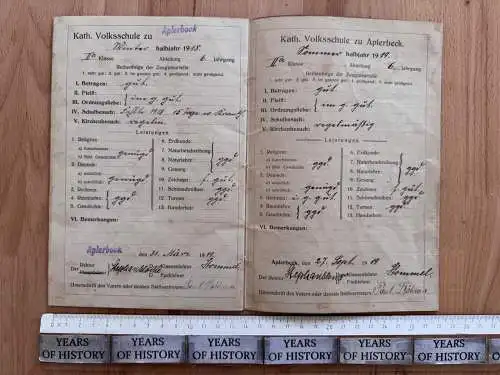 Kath. Volksschule zu Aplerbeck
Winter halbjahr 1918.
IIa Klasse Abteilung 6. Jahrgang
Reihenfolge der Zeugnisurteile
1. sehr gut 2. gut 3. im ganzen gut 4. genügend 5. nicht genügend
I. Betragen: gut.
II. Fleiß:
III. Ordnungsliebe: im g. gut.
IV. Schulbesuch:
V. Kirchenbesuch:
Leistungen
1. Religion:
a) Katechismus
b) Bibl. Geschichte
genügd
2. Deutsch:
a) mündlich
b) schriftlich
genügd
3. Rechnen:
4. Raumlehre: ggd
5. Geschichte:
6. Erdkunde:
7. Naturbeschreibung:
8. Naturlehre: ggd
9. Gesang:
10. Zeichnen: gut
11. Schönschreiben: ggd
12. Turnen: ggd
13. Handarbeit:
VI. Bemerkungen:
Aplerbeck, den 31. März 1919.
Der Rektor
Klassenlehrer
Hommel
Unterschrift des Vaters oder dessen Stellvertreters:
Kath. Volksschule zu Aplerbeck.
Sommer halbjahr 1919.
IIa Klasse. Abteilung 6. Jahrgang
Reihenfolge der Zeugnisurteile
1. sehr gut 2. gut 3. im ganzen gut 4. genügend 5. nicht genügend
I. Betragen: gut.
II. Fleiß:
III. Ordnungsliebe: im g. gut.
IV. Schulbesuch:
V. Kirchenbesuch: regelmäßig
Leistungen.
1. Religion:
a) Katechismus
b) Bibl. Geschichte
ggd
2. Deutsch:
a) mündlich
b) schriftlich
genügd
3. Rechnen:
4. Raumlehre:
5. Geschichte: ggd
6. Erdkunde:
7. Naturbeschreibung:
8. Naturlehre: ggd
9. Gesang:
10. Zeichnen: gut
11. Schönschreiben: ggd
12. Turnen: ggd
13. Handarbeit:
VI. Bemerkungen:
Aplerbeck, den 27. Sept. 1919
Der Rektor
Klassenlehrer
Hommel.
Unterschrift des Vaters oder dessen Stellvertreters:
YEARS OF HISTORY
YEARS OF HISTORY
YEARS OF HISTORY
YEARS OF HISTORY
YEARS OF HISTORY
YEARS OF HISTORY